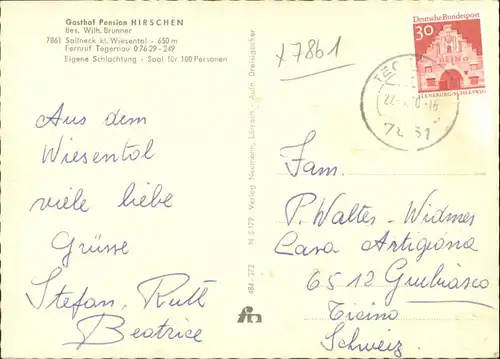 Gasthof Pension HIRSCHEN
Bes. Wilh. Brunner
7861 Sallneck kl. Wiesental - 650 m
Fernruf Tegernau 07629-249
Eigene Schlachtung - Saal für 100 Personen
x 7861
Deutsche Bundespost
30
FLENSBURG/SCHLESWIG
7861
Aus dem
Wiesental
viele liebe
Grüsse
Stefan, Ruth
Beatrice
N 5129 Verlag Neumann, Lörrach - Aufn. Dreisigacker
484 272
Fam.
P. Walter-Widmer
Casa Artigiana
6512 Giubiasco
Ticino
Schweiz